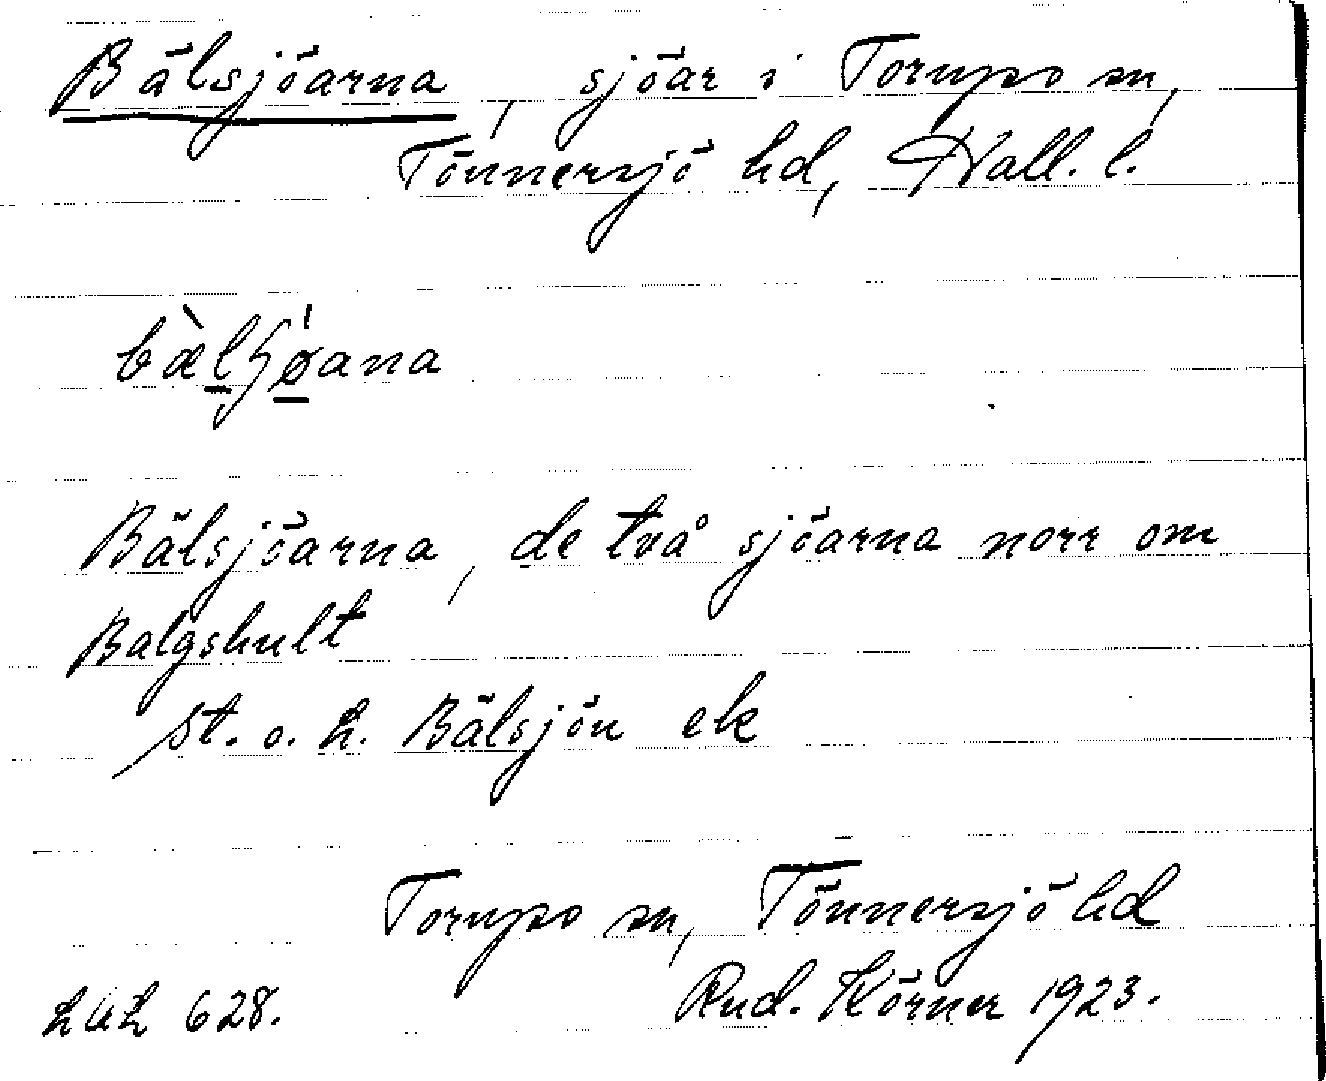 Bälsjöarna, sjöar i Torups sn,
Tönnersjö hd, Hall. l.
Bälsjöarna, de två sjöarna norr om
Balgshult
St. o. L. Bälsjön ek
Torups sn, Tönnersjö hd
LUL 628. Rud. Körner 1923.